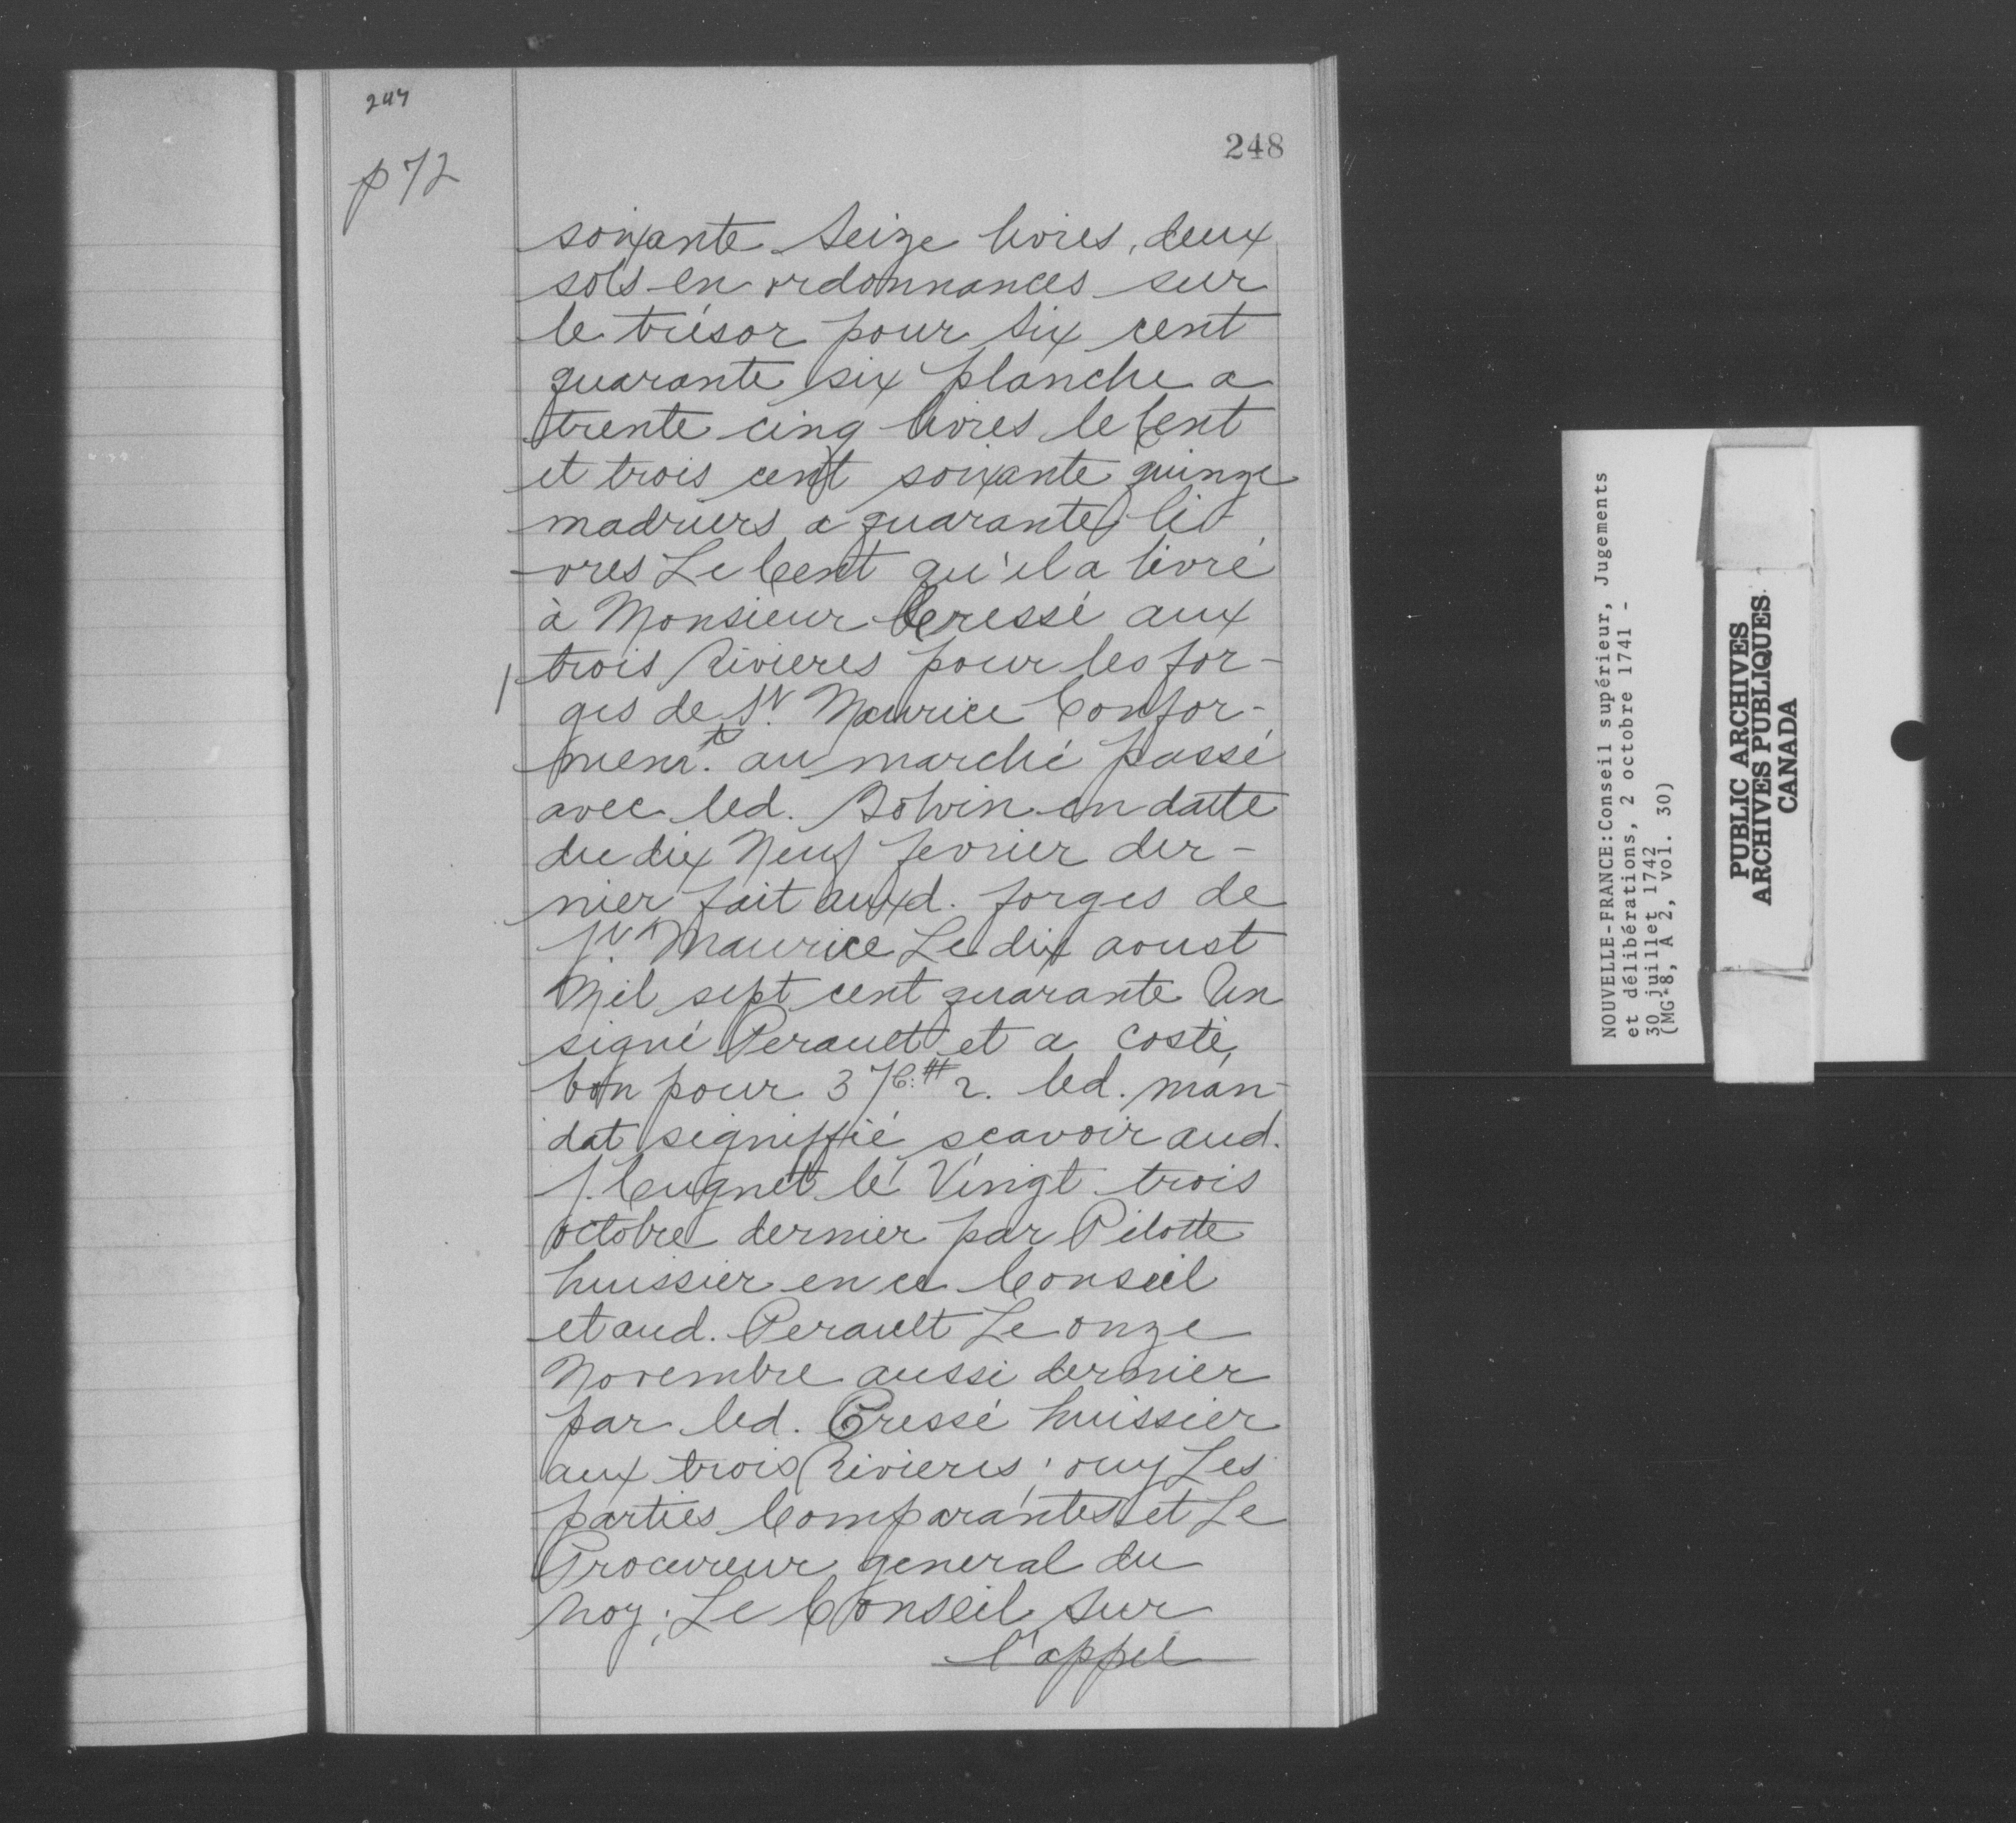 247
248
p 72
soixante Seize livres, deux
sols en ordonnances sur
le trésor pour Six cent
quarante six planche a
trente cinq livres le Cent
et trois cent soixante quinze
madriers a quarante li-
vres Le Cent qu'il a livré
à Monsieur Cressé aux
trois Rivieres pour les for-
ges de St. Maurice Confor-
mem.t au marché passé
avec led. Bolvin en datte
du dix Neuf fevrier der-
nier fait auxd. forges de
St. Maurice Le dix aoust
Mil sept cent quarante Un
signé Perault et a costé,
bon pour 376:# 2. led. man-
dat signiffié scavoir aud.
S. Cugnet le Vingt trois
octobre dernier par Pilotte
huissier en ce Conseil
et aud. Perault Le onze
Novembre aussi dernier
par led. Cressé huissier
aux trois Rivieres; ouy Les
parties Comparantes et Le
Procureur general du
Roy; Le Conseil sur
l'appel
NOUVELLE-FRANCE:Conseil supérieur, Jugements
et délibérations, 2 octobre 1741 -
30 juillet 1742
(MG 8, A 2, vol. 30)
PUBLIC ARCHIVES
ARCHIVES PUBLIQUES
CANADA